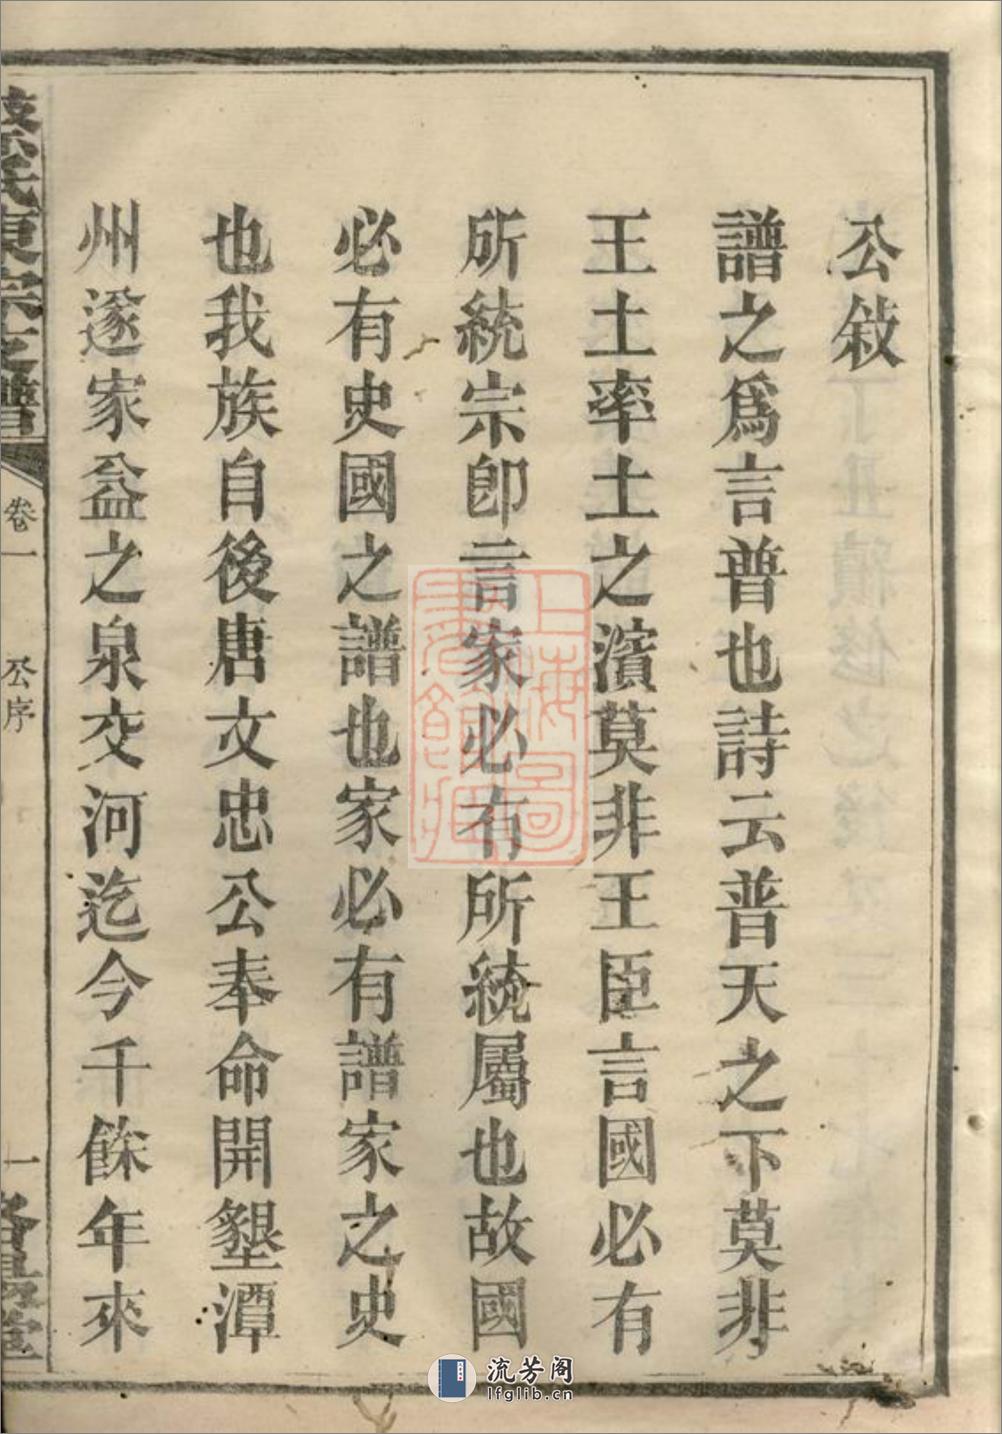 公敘
譜之爲言普也詩云普天之下莫非
王土率土之濱莫非王臣言國必有
所統宗卽言家必有所統屬也故國
必有史國之譜也家必有譜家之史
也我族自後唐文忠公奉命開墾潭
州遂家益之泉交河迄今千餘年來
氏東宗支譜
卷一
公序
一
上海圖書館藏
流芳阁
lfglib.cn